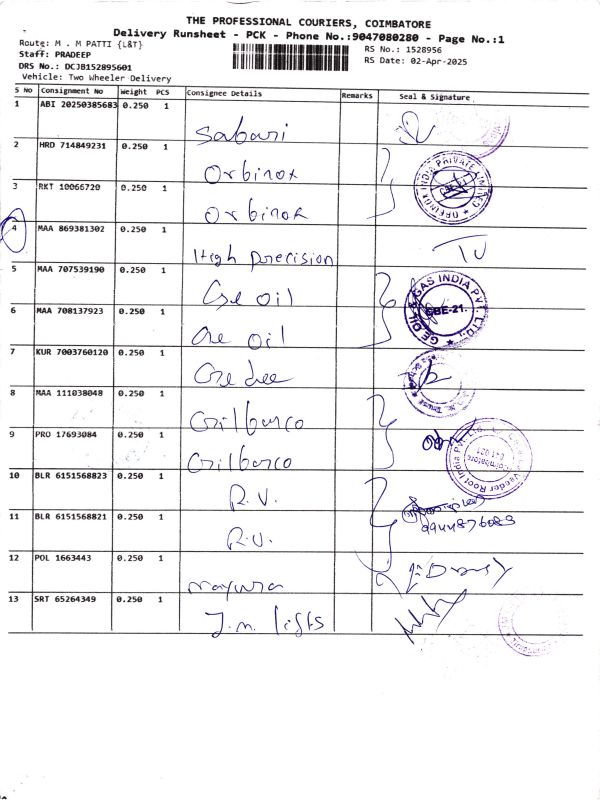 THE PROFESSIONAL COURIERS, COIMBATORE
Delivery Runsheet - PCK - Phone No.:9047080280 - Page No.:1
Route: M . M PATTI {L&T}
RS No.: 1528956
Staff: PRADEEP
RS Date: 02-Apr-2025
DRS No.: DCJB152895601
Vehicle: Two Wheeler Delivery
S No Consignment No Weight PCS Consignee Details Remarks Seal & Signature
1 ABI 20250385683 0.250 1 Sabari
2 HRD 714849231 0.250 1 Orbinox
3 RKT 10066720 0.250 1 Orbinox
ORBINOX INDIA PRIVATE LIMITED
4 MAA 869381302 0.250 1 High precision
5 MAA 707539190 0.250 1 Ge oil
6 MAA 708137923 0.250 1 Ge oil
GE OIL & GAS INDIA PVT. LTD.
CBE-21.
7 KUR 7003760120 0.250 1
8 MAA 111038048 0.250 1 Gilbarco
9 PRO 17693084 0.250 1 Gilbarco
Veeder Root India Pvt. Ltd.
Coimbatore
641 021
10 BLR 6151568823 0.250 1 R.V.
11 BLR 6151568821 0.250 1 R.V.
12 POL 1663443 0.250 1 mayura
13 SRT 65264349 0.250 1 J.m. lifts